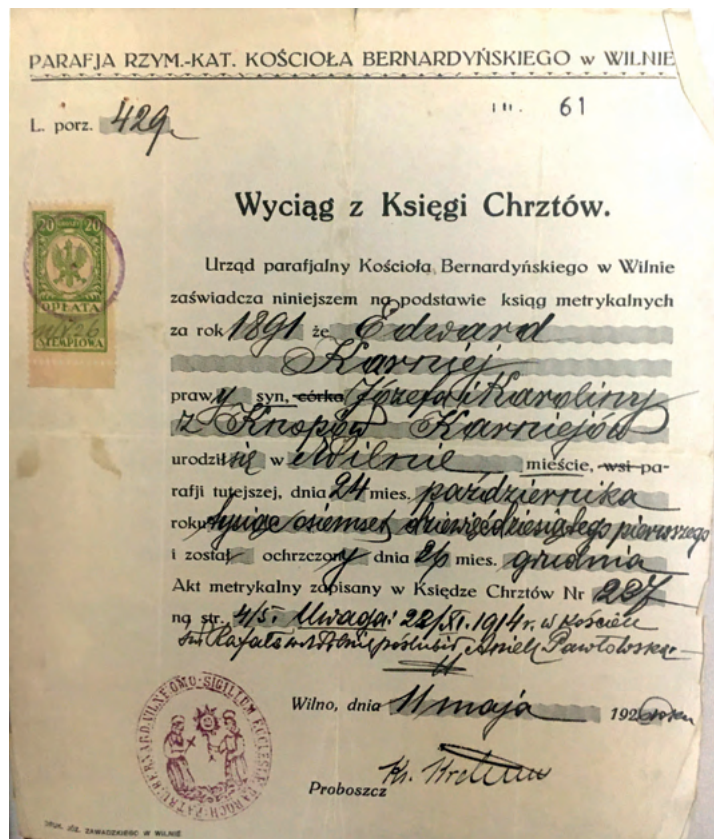 PARAFJA RZYM.-KAT. KOŚCIOŁA BERNARDYŃSKIEGO w WILNIE
61
L. porz. 429
Wyciąg z Księgi Chrztów.
20 20
OPŁATA
STEMPLOWA
Urząd parafjalny Kościoła Bernardyńskiego w Wilnie
zaświadcza niniejszem na podstawie ksiąg metrykalnych
za rok 1891 że Edward
Karniej
prawy syn, córka Józefa i Karoliny
z Knopów Karniejów
urodził się w Wilnie mieście, wsi pa-
rafji tutejszej, dnia 24 mies. października
roku tysiąc osiemset dziewięćdziesiątego pierwszego
i został ochrzczony dnia 26 mies. grudnia
Akt metrykalny zapisany w Księdze Chrztów Nr 227
na str. 4/5. Uwaga: 22/XI. 1914 r. w kościele
św. Rafała w Wilnie poślubił Anielę Pawłowską
Wilno, dnia 11 maja 192 roku
Proboszcz Ks.
DRUK. JÓZ. ZAWADZKIEGO W WILNIE